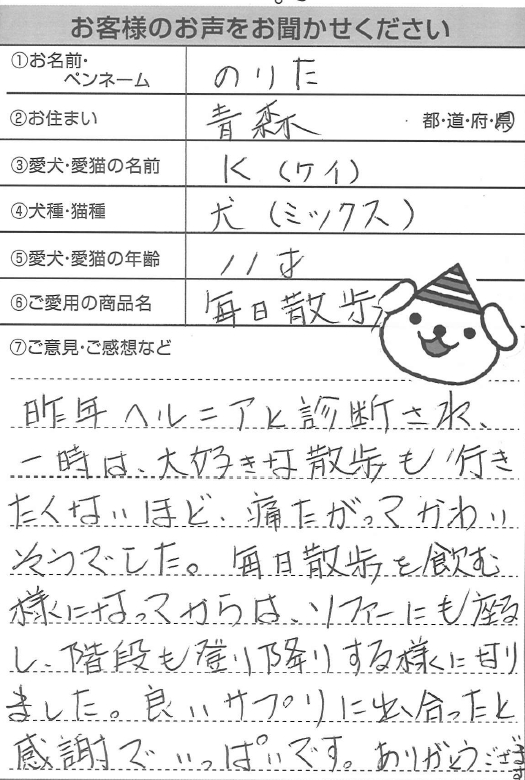 お客様のお声をお聞かせください
①お名前・
ペンネーム
のりた
②お住まい
青森
都・道・府・県
③愛犬・愛猫の名前
K（ケイ）
④犬種・猫種
犬（ミックス）
⑤愛犬・愛猫の年齢
11才
⑥ご愛用の商品名
毎日散歩
⑦ご意見・ご感想など
昨年ヘルニアと診断され、
一時は、大好きな散歩も行き
たくないほど、痛たがってかわい
そうでした。毎日散歩を飲む
様になってからは、ソファーにも座る
し、階段も登り降りする様になり
ました。良いサプリに出合ったと
感謝でいっぱいです。ありがとうござい
ます